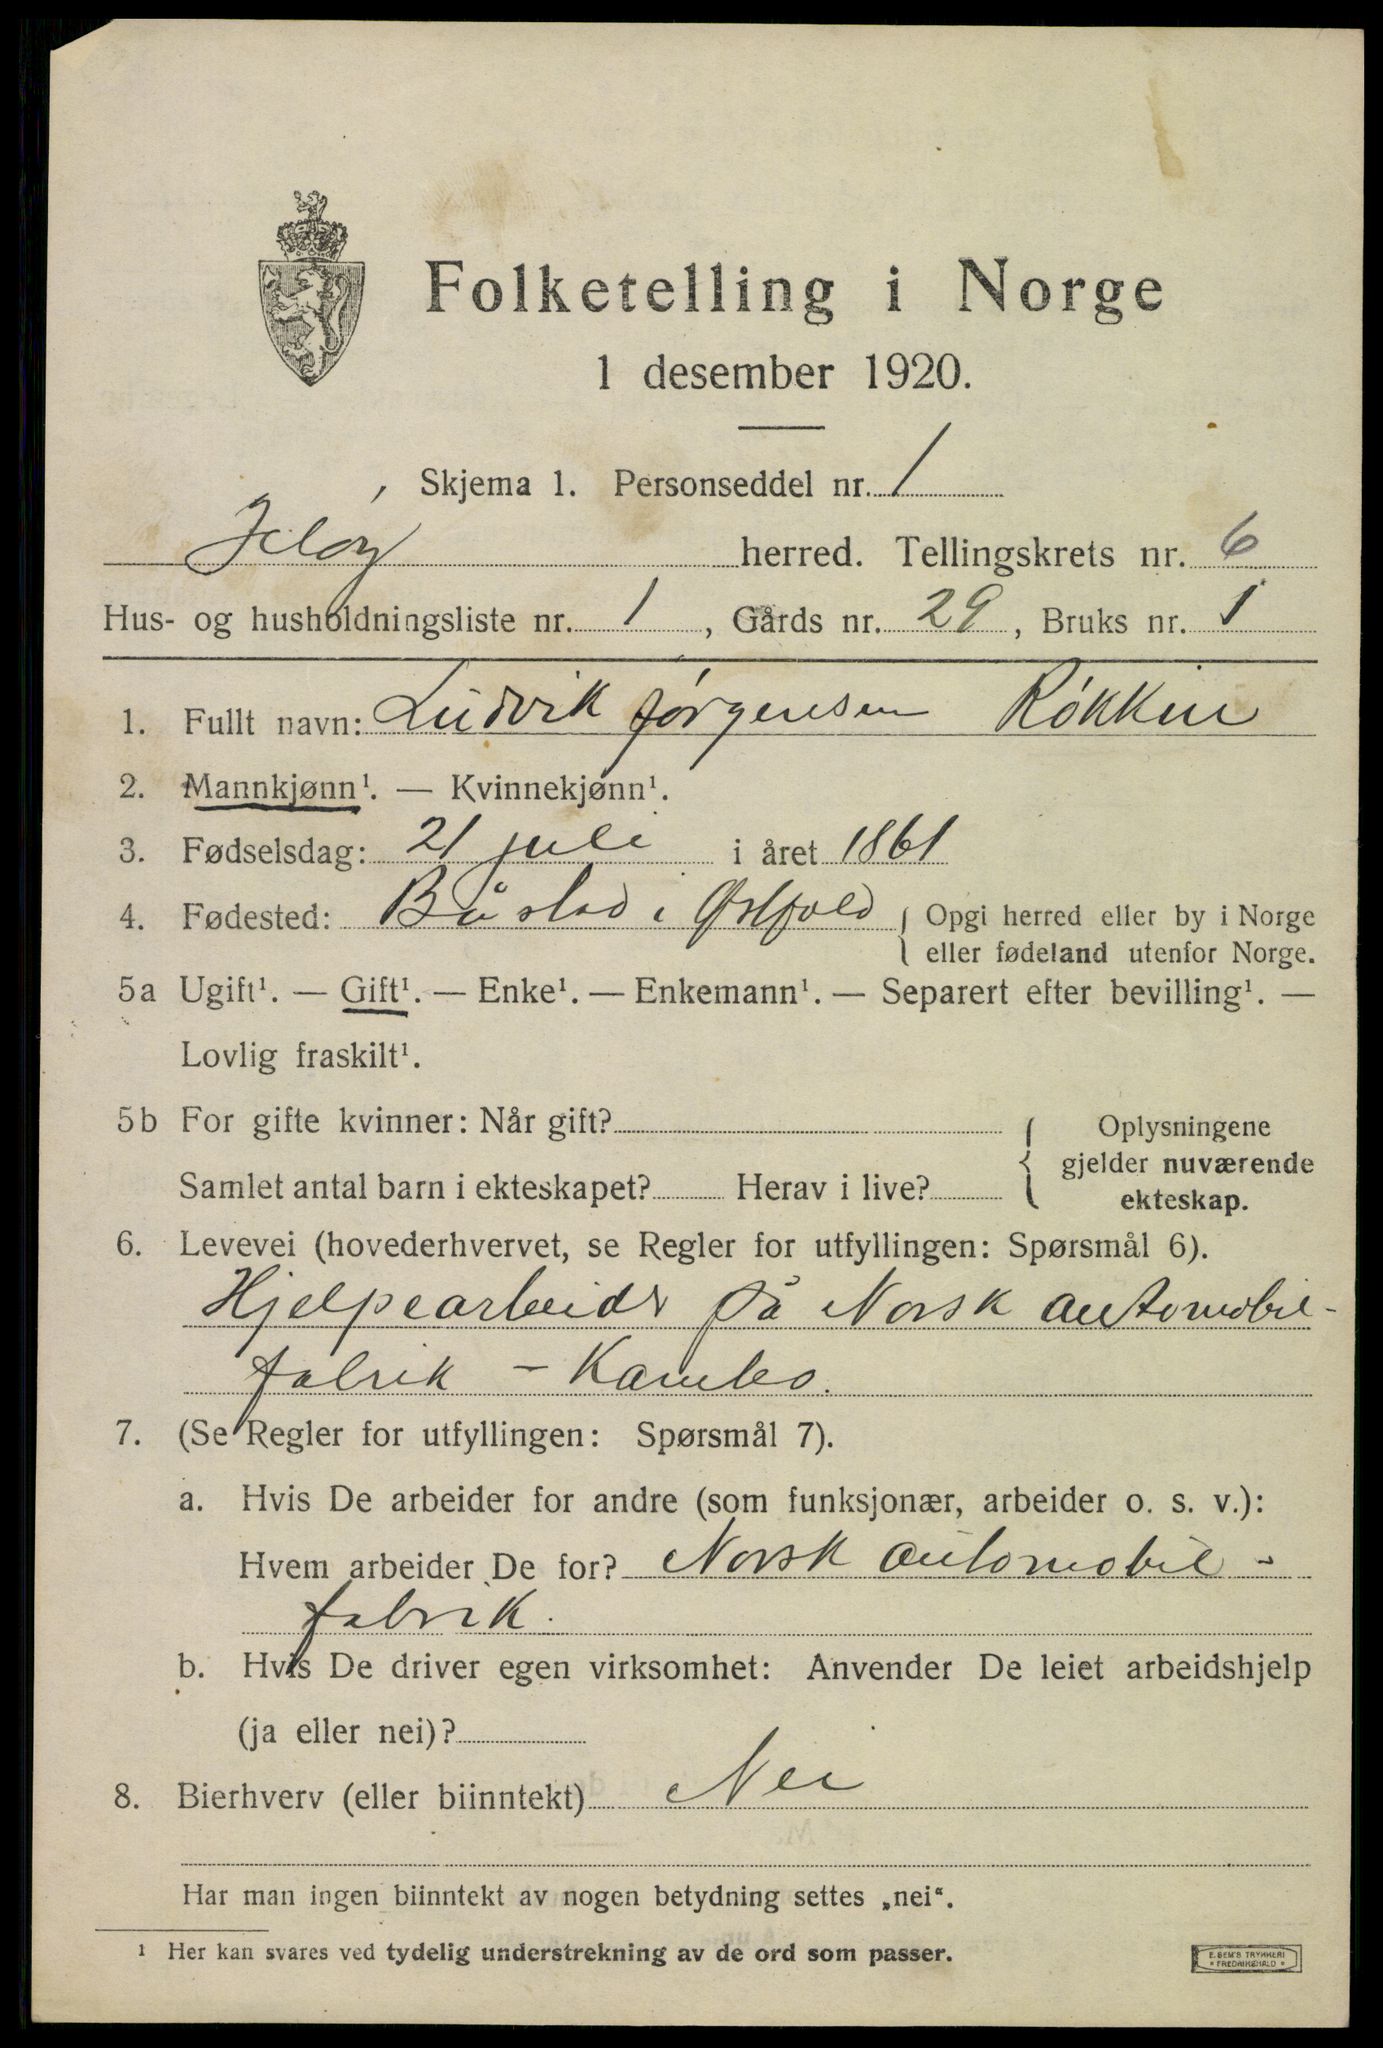 Folketelling i Norge
1 desember 1920.
Skjema 1. Personseddel nr. 1
Jeløy herred. Tellingskrets nr. 6
Hus- og husholdningsliste nr. 1, Gårds nr. 29, Bruks nr. 1
1. Fullt navn: Ludvik Jørgensen Røkkin
2. Mannkjønn¹. — Kvinnekjønn¹.
3. Fødselsdag: 21 juli i året 1861
4. Fødested: Båstad i Østfold { Opgi herred eller by i Norge
eller fødeland utenfor Norge.
5a Ugift¹. — Gift¹. — Enke¹. — Enkemann¹. — Separert efter bevilling¹. —
Lovlig fraskilt¹.
5b For gifte kvinner: Når gift?
Samlet antal barn i ekteskapet? Herav i live?
{ Oplysningene
gjelder nuværende
ekteskap.
6. Levevei (hovederhvervet, se Regler for utfyllingen: Spørsmål 6).
Hjelpearbeidr på Norsk automobil-
fabrik - Kambo.
7. (Se Regler for utfyllingen: Spørsmål 7).
a. Hvis De arbeider for andre (som funksjonær, arbeider o. s. v.):
Hvem arbeider De for? Norsk automobil-
fabrik.
b. Hvis De driver egen virksomhet: Anvender De leiet arbeidshjelp
(ja eller nei)?
8. Bierhverv (eller biinntekt) Nei
Har man ingen biinntekt av nogen betydning settes „nei“.
¹ Her kan svares ved tydelig understrekning av de ord som passer.
E. SEM'S TRYKKERI
FREDRIKSHALD